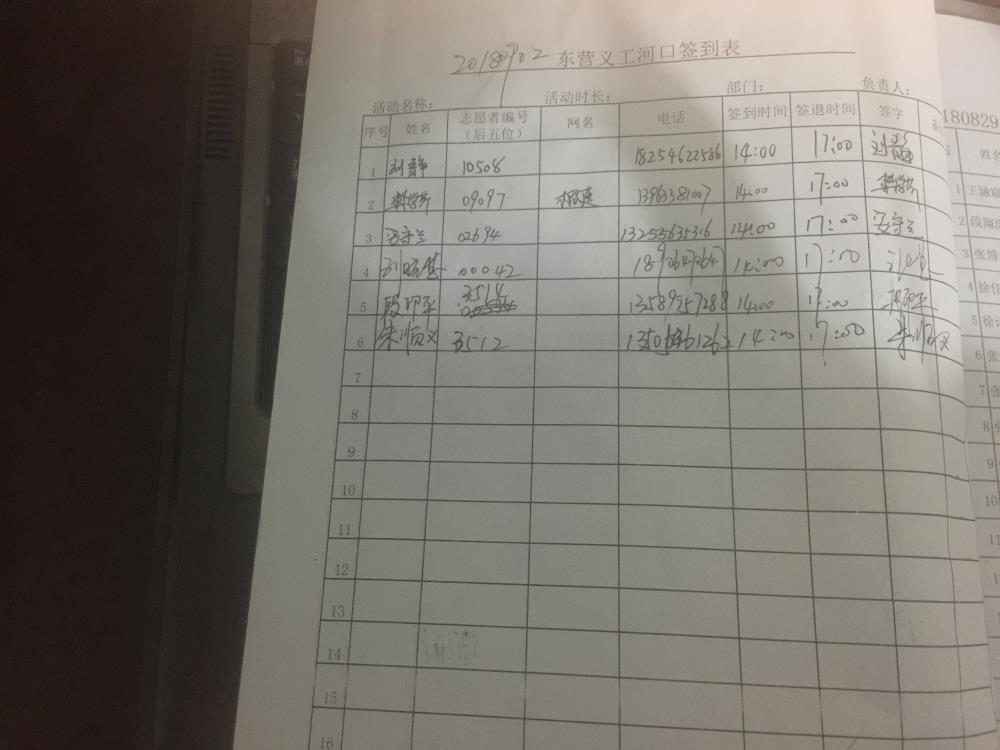 20180902 东营义工河口签到表
活动名称: 活动时长: 部门: 负责人:
序号 姓名 志愿者编号（后五位） 网名 电话 签到时间 签退时间 签字
1 刘静 10508 18254622586 14:00 17:00 刘静
2 09097 13963381007 14:00 17:00
3 安守兰 02694 13255635316 14:00 17:00 安守兰
4 00042 14:00 17:00
5 3514 13589957288 14:00 17:00
6 朱顺义 3512 14:00 17:00 朱顺义
7
8
9
10
11
12
13
14
15
16
180829
姓名
1 王涵宸
2 段翔
3 张博
4 徐佳
5 徐
6 张
7 张
8
9
10
11